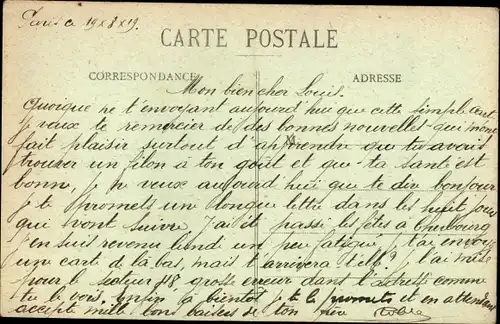 Paris ce 19 x 8 x 19.
CARTE POSTALE
CORRESPONDANCE
ADRESSE
Mon bien cher Louis.
Quoique ne t'envoyant aujourd'hui que cette simple carte
je veux te remercier de des bonnes nouvelles qui m'ont
fait plaisir surtout d'apprendre que tu avais
trouver un filon à ton goût et que ta santé est
bonne, je ne veux aujourd'hui que te dire bonjour
je te promets une longue lettre dans les huit jours
qui vont suivre, j'ai passé les fêtes à Cherbourg
j'en suis revenu lundi un peu fatigué, je t'ai envoyé
un carte de la bas, mais t'arrivera t'elle? j'ai mis
pour le secteur 118, grosse erreur dans l'adresse comme
tu le vois, enfin à bientôt je te promets et en attendant
accepte mille bons baisers de ton